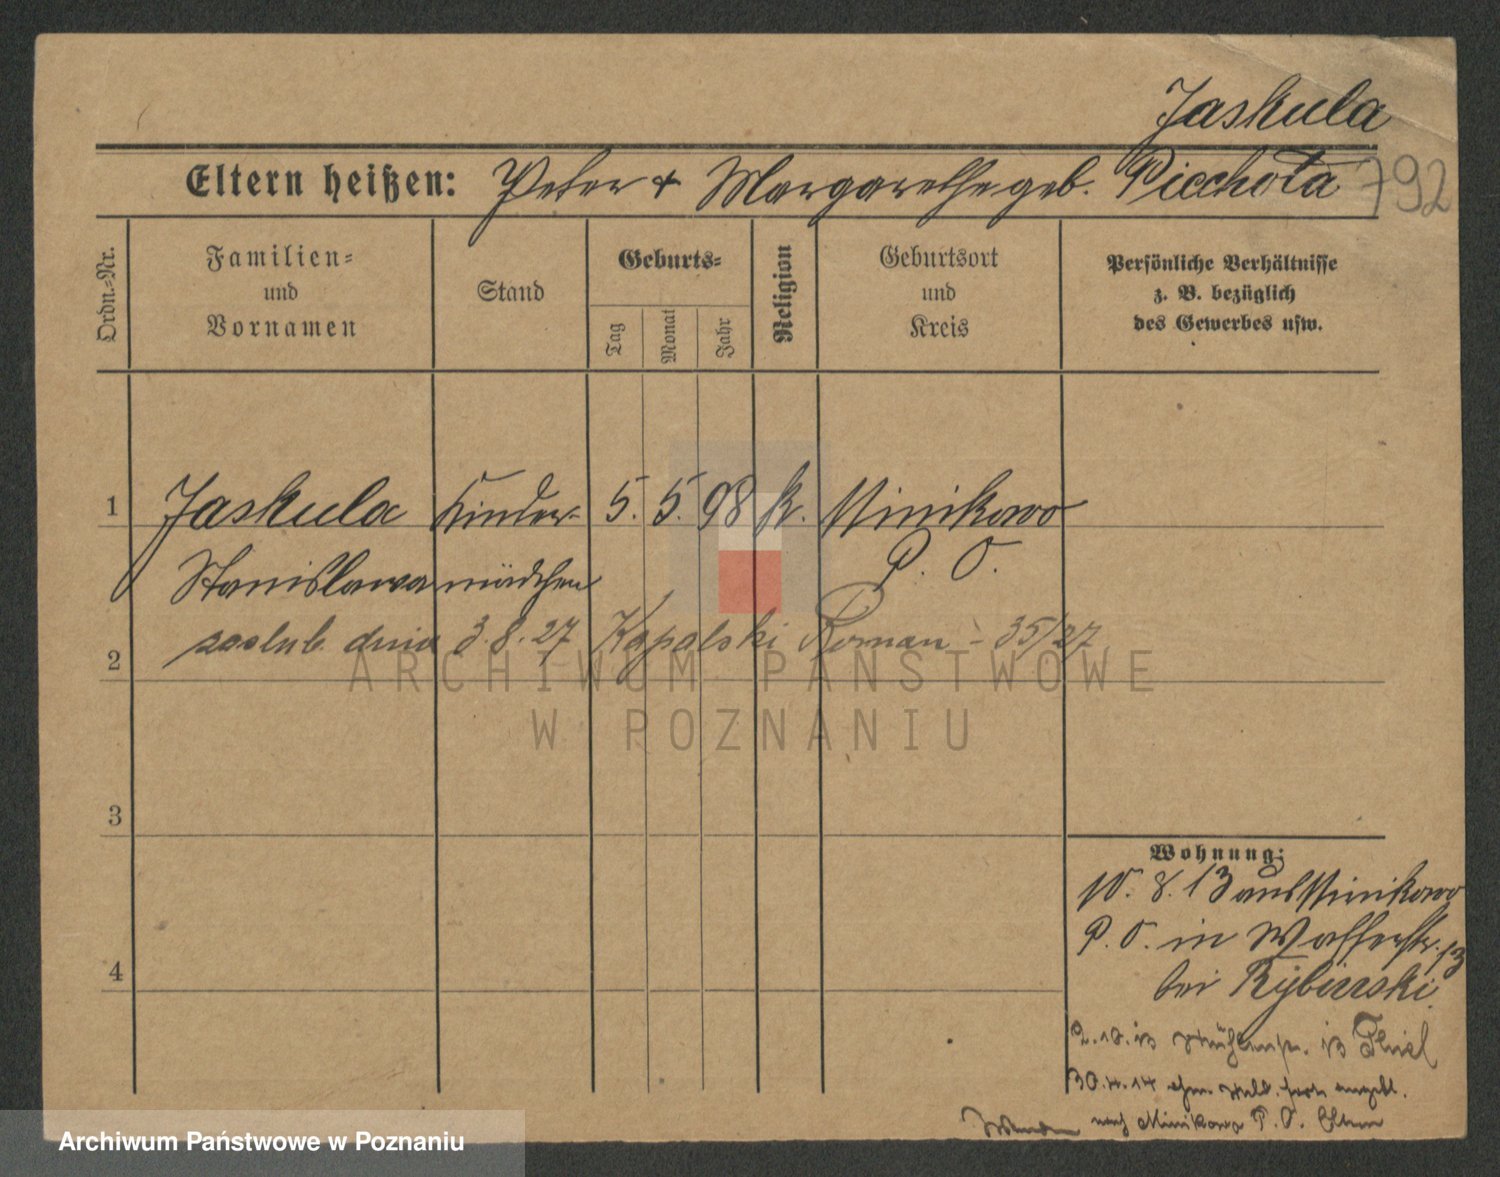 Jaskula
Eltern heißen: Peter + Margarethe geb. Piechota
792
Ordn.=Nr.
Familien=
und
Vornamen
Stand
Geburts=
Tag
Monat
Jahr
Religion
Geburtsort
und
Kreis
Persönliche Verhältnisse
z. B. bezüglich
des Gewerbes usw.
1 Jaskula Kinder- 5. 5. 98 k. Minikowo
Stanislawa mädchen P. O.
2 zaslub. dnia 3.8.27 Kapalski Roman - 35/27
ARCHIWUM PAŃSTWOWE
W POZNANIU
3
4
Wohnung:
10. 8. 13 aus Minikowo
P. O. in Wasserstr. 13
bei Rybinski.
2.10.13 13 Thiel
30.4.14 ohne Meld. fort angebl.
nach Minikowo P. O. Eltern
Wenden
Archiwum Państwowe w Poznaniu